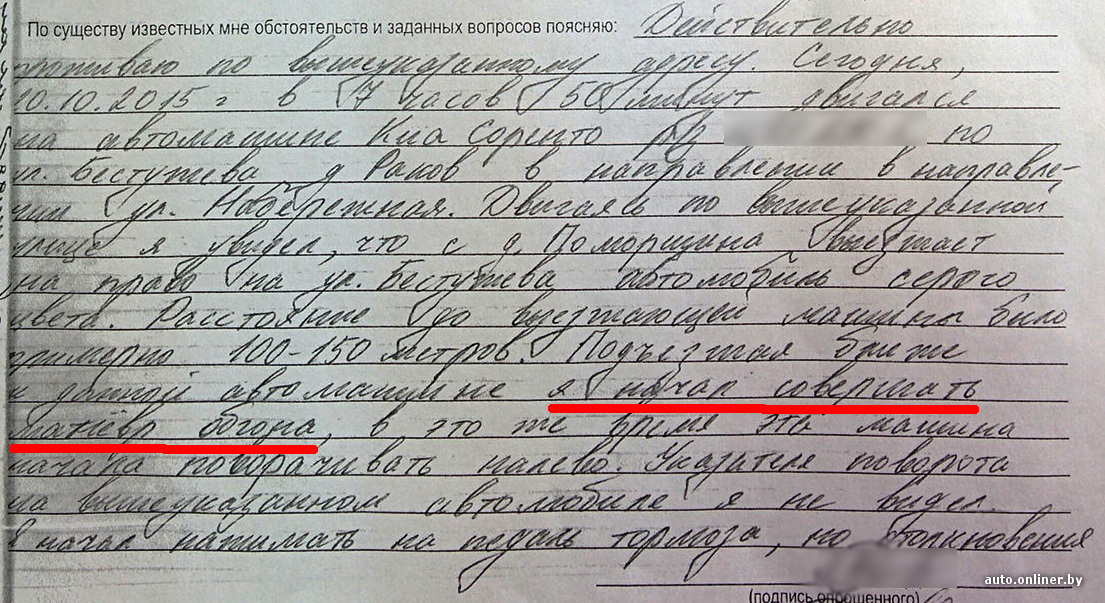 По существу известных мне обстоятельств и заданных вопросов поясняю: Действительно
проживаю по вышеуказанному адресу. Сегодня,
10.10.2015 г в 17 часов 50 минут двигался
на автомашине Киа Соренто по
ул. Бестужева д Раков в направлении в направле-
нии ул. Набережная. Двигаясь по вышеуказанной
улице я увидел, что с д. Поморщина выезжает
на право на ул. Бестужева автомобиль серого
цвета. Расстояние до выезжающей машины было
примерно 100-150 метров. Подъезжая ближе
к данной автомашине я начал совершать
манёвр обгона, в это же время эта машина
начала поворачивать налево. Указателя поворота
на вышеуказанном автомобиле я не видел.
Я начал нажимать на педаль тормоза, но столкновения
auto.onliner.by
(подпись опрошенного)